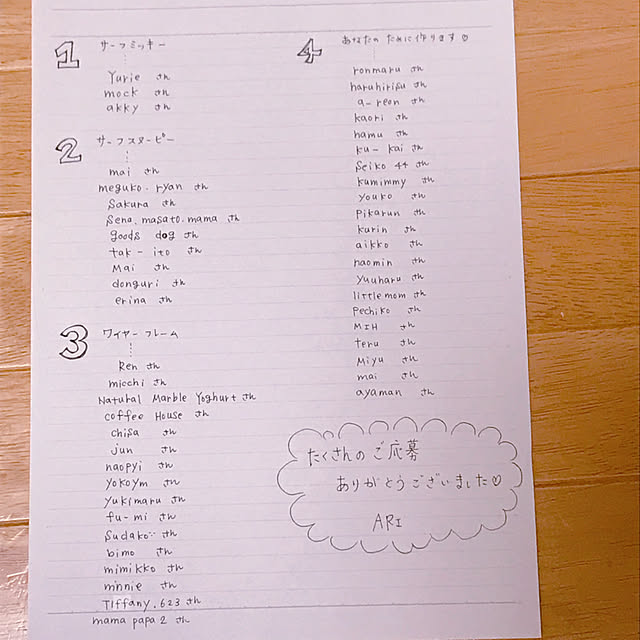 1 サーフミッキー
Yurie さん
mock さん
akky さん
2 サーフスヌーピー
mai さん
meguko.ryan さん
Sakura さん
Sena.masato.mama さん
goods dog さん
tak-ito さん
Mai さん
donguri さん
erina さん
3 ワイヤーフレーム
Ren さん
micchi さん
Natural Marble Yoghurt さん
coffee House さん
chisa さん
jun さん
naopyi さん
yokoym さん
yukimaru さん
fu-mi さん
Sudako¨ さん
bimo さん
mimikko さん
minnie さん
Tiffany.623 さん
mama papa 2 さん
4 あなたのために作ります♡
ronmaru さん
haruhirisu さん
a-reon さん
kaori さん
hamu さん
ku-kai さん
Seiko 44 さん
kumimmy さん
youko さん
pikarun さん
kurin さん
aikko さん
naomin さん
yuuharu さん
littlemom さん
pechiko さん
MIH さん
teru さん
Miyu さん
mai さん
ayaman さん
たくさんのご応募
ありがとうございました♡
ARI